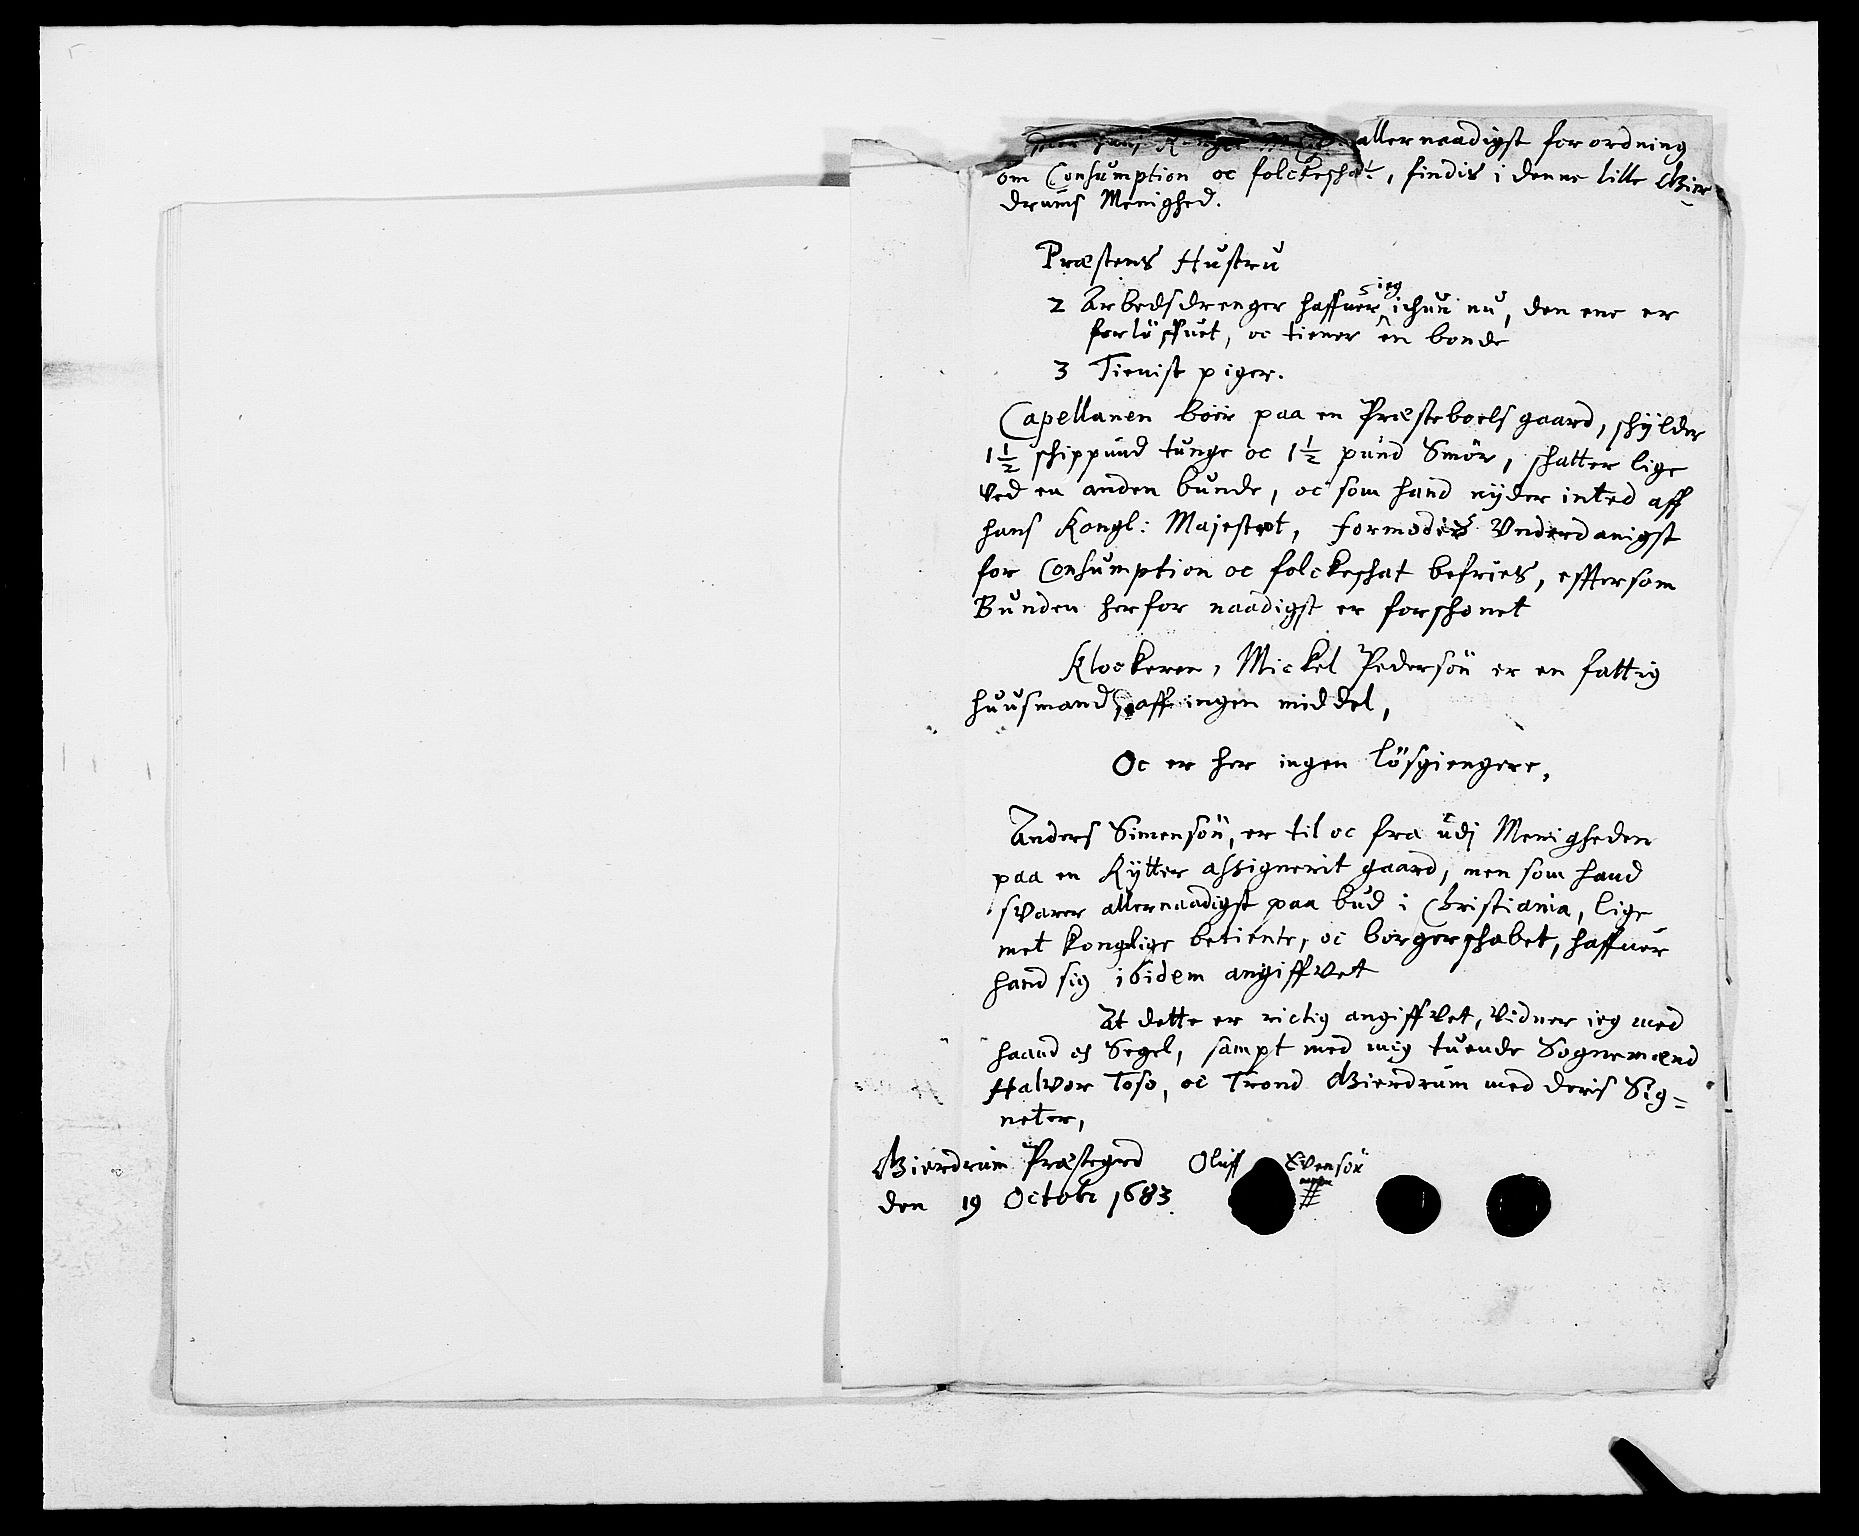 hans Konge allernaadigst forordning
om Consumption oc folckeschat, findis i denne lille Bier
drums Menighed.
Præstens Hustru
2 Arbedsdrenger haffuer ieg ichun nu, den ene er
forlöffuet, oc tiener en bonde
3 Tienist piger.
Capellanen boer paa en Præsteboels gaard, schÿlder
1 1/2 schippund tunge oc 1 1/2 pund Smör, schatter lige
ved en anden bunde, oc som hand nÿder inted aff
hans Kongl: Majestæt, formodis Vnderdanigst
for Consumption oc folckeschat befries, efftersom
Bunden herfor naadigst er forschonet
Klockeren, Mickel Pedersön er en fattig
huusmand, aff ingen middel,
Oc er her ingen lösgiengere,
Anders Simensön, er til oc fra udj Menigheden
paa en Rÿtter assignerit gaard, men som hand
svarer allernaadigst paa bud i Christiania, lige
met konglige betiente, oc borgerschabet, haffuer
hand sig ibidem angiffvet
At dette er rictig angiffvet, Vidner ieg med
haand oc Segel, sampt med mig tuende Sognemænd
Halvor Toso, oc Trond Bierdrum med deris Sig=
neter,
Bierdrum Præstegrd Oluff Evensön
den 19 Octobr 1683